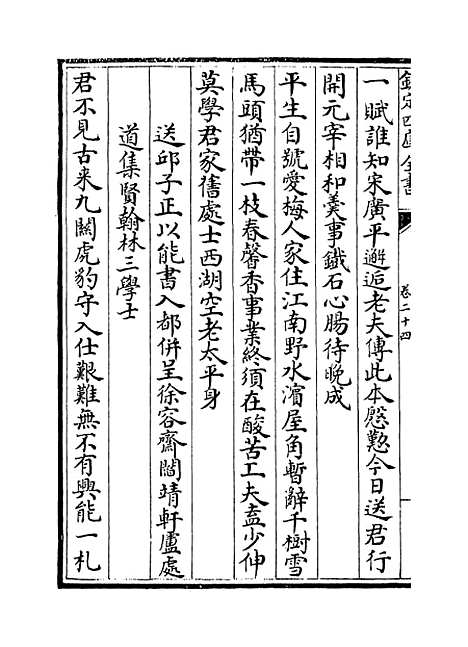 欽定四庫全書
卷二十四
一賦誰知宋廣平邂逅老夫傳此本慇懃今日送君行
開元宰相和羹事鐵石心腸待晚成
平生自號愛梅人家住江南野水濵屋角暫辭千樹雪
馬頭猶帶一枝春馨香事業終須在酸苦工夫盍少伸
莫學君家舊處士西湖空老太平身
送邱子正以能書入都併呈徐容齋閻靖軒盧處
道集賢翰林三學士
君不見古来九關虎豹守入仕艱難無不有興能一札